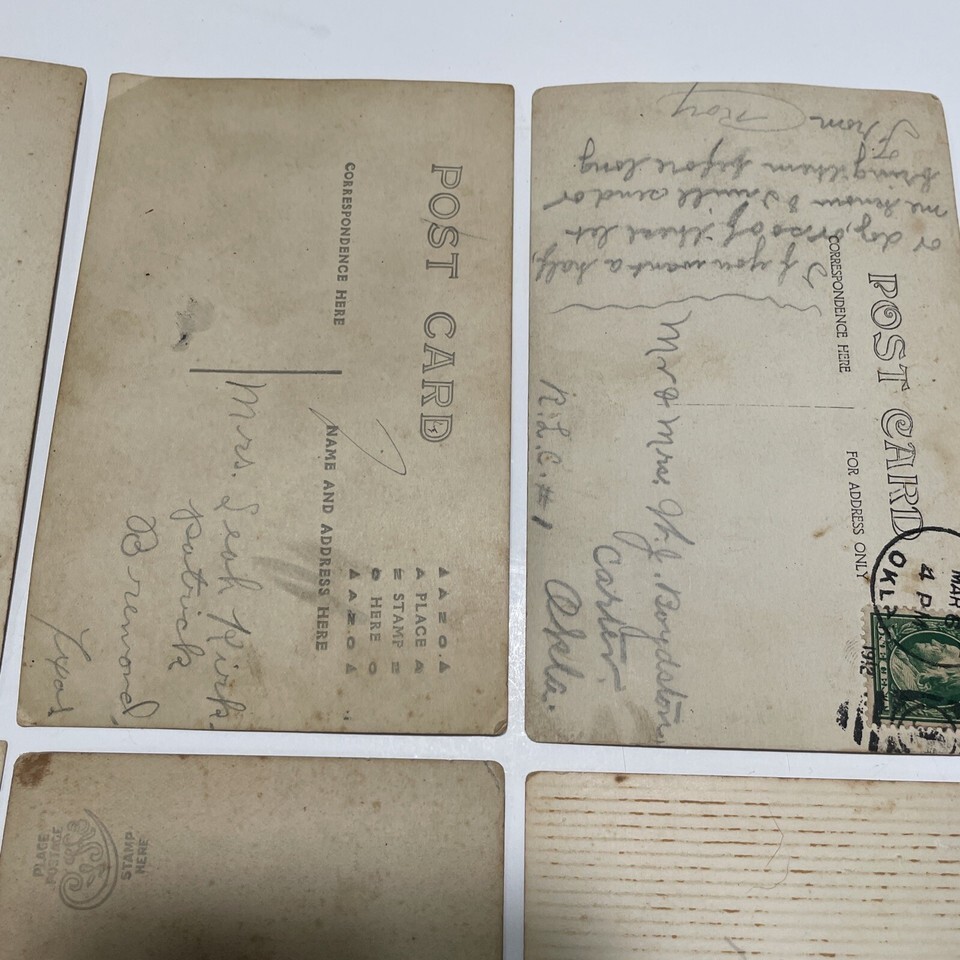 POST CARD
CORRESPONDENCE HERE
NAME AND ADDRESS HERE
▲ A Z O ▲
A PLACE A
Z STAMP Z
O HERE O
▲ A Z O ▲
Mrs. Leah Kirk-
patrick
Bremond,
Texas
POST CARD
CORRESPONDENCE HERE
FOR ADDRESS ONLY
OKLA
MAR 6
4 PM
1912
Mr & Mrs. W. J. Boydston,
Carter,
Okla.
If you want a half
or doz. or so of these let
me know & I will send or
bring them before long
From Roy
PLACE
POSTAGE
STAMP
HERE